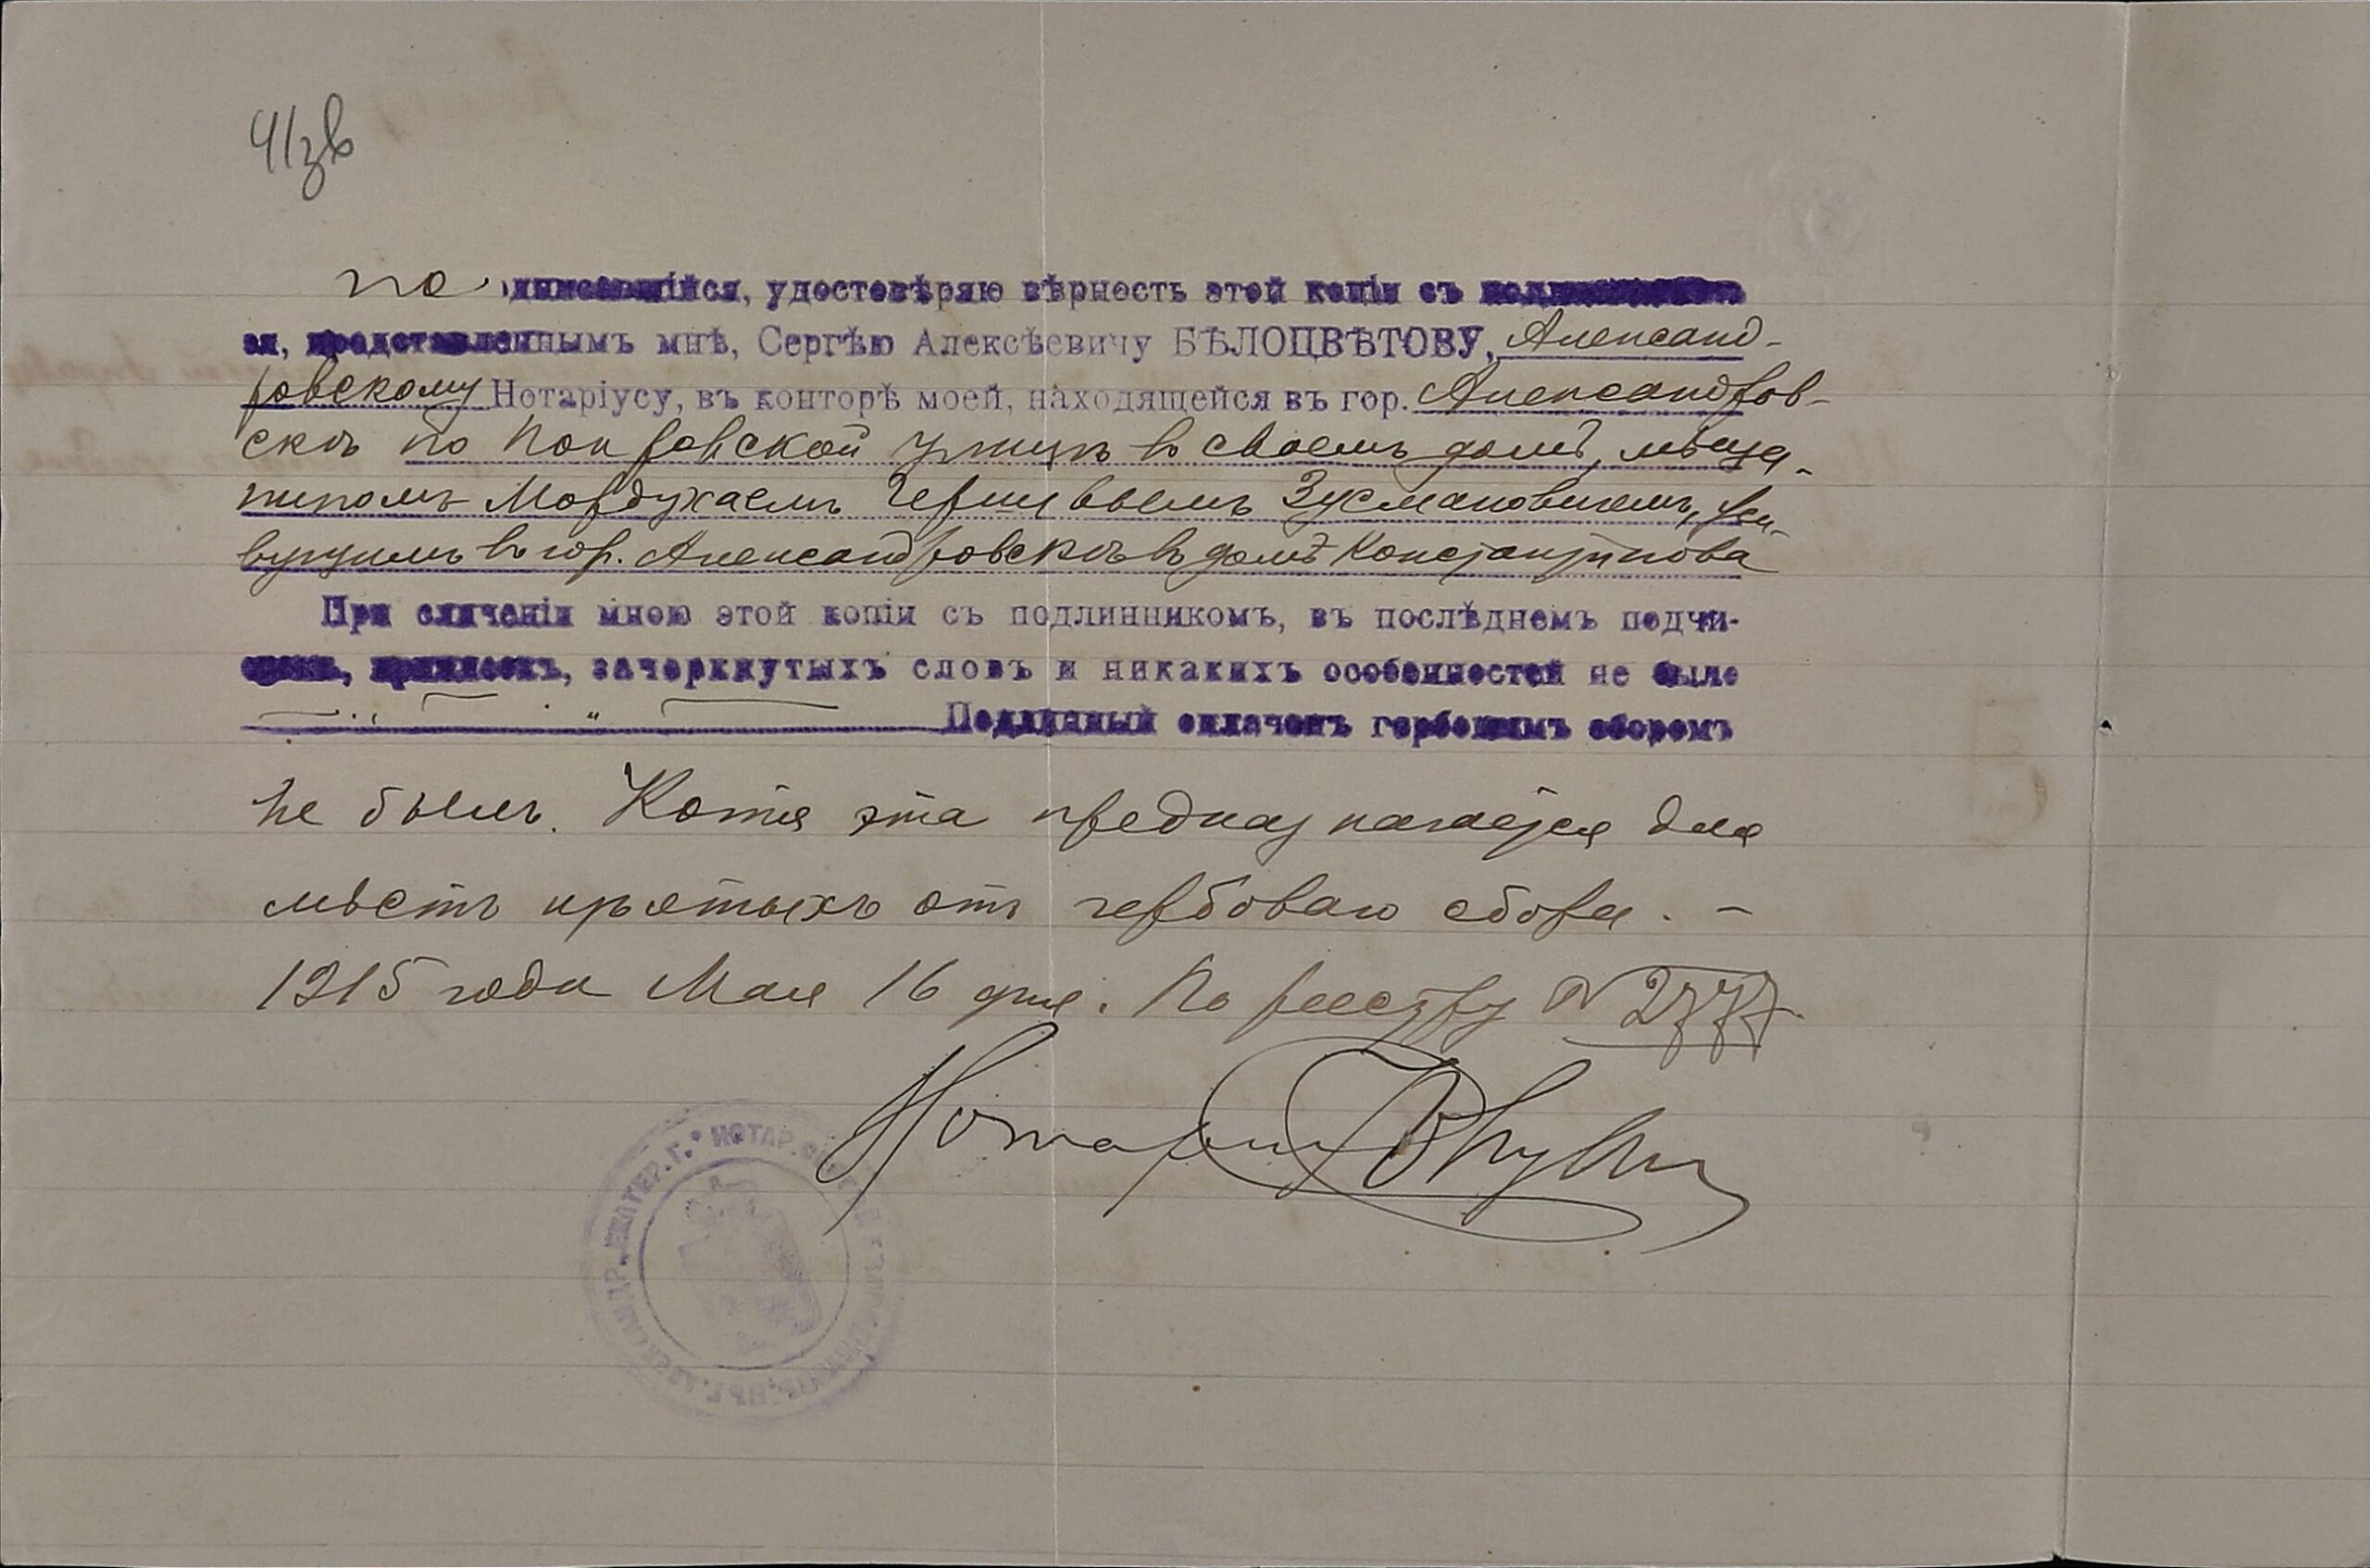 41зв
подписавшійся, удостовѣряю вѣрность этой копіи съ подлинникомъ
ея, представленнымъ мнѣ, Сергѣю Алексѣевичу БѢЛОЦВѢТОВУ, Александ-
ровскому Нотаріусу, въ конторѣ моей, находящейся въ гор. Александров-
скѣ по Покровской улицѣ въ своемъ домѣ, мѣща-
ниномъ Мордухаемъ Гершевымъ Зусмановичемъ, жи-
вущимъ въ гор. Александровскѣ въ домѣ Константинова
При сличеніи мною этой копіи съ подлинникомъ, въ послѣднемъ подчи-
стокъ, приписокъ, зачеркнутыхъ словъ и никакихъ особенностей не было
Подлинный оплаченъ гербовымъ сборомъ
не былъ. Копія эта предназначается для
мѣстъ изъятыхъ отъ гербоваго сбора. –
1915 года Мая 16 дня. По реестру N 2777.
Нотаріусъ
НОТАР. ЕКАТЕР. Г. АЛЕКСАНДР.